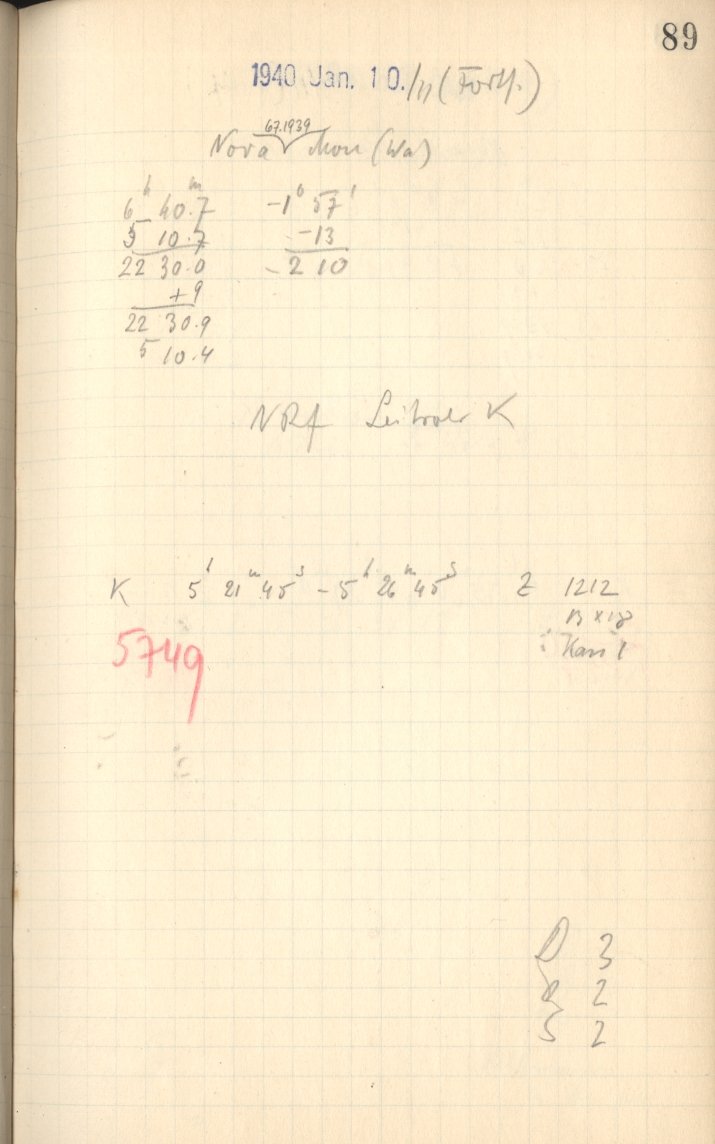 89
1940 Jan. 10./11 (Forts.)
67.1939
Nova Mon (Wa)
6h 40.7m -1° 57'
5 10.7 -13
22 30.0 -2 10
+9
22 30.9
5 10.4
NRf Leitrohr K
K 5h 21m 45s - 5h 26m 45s Z 1212
B x 18
Kass 1
5749
D 3
R 2
S 2